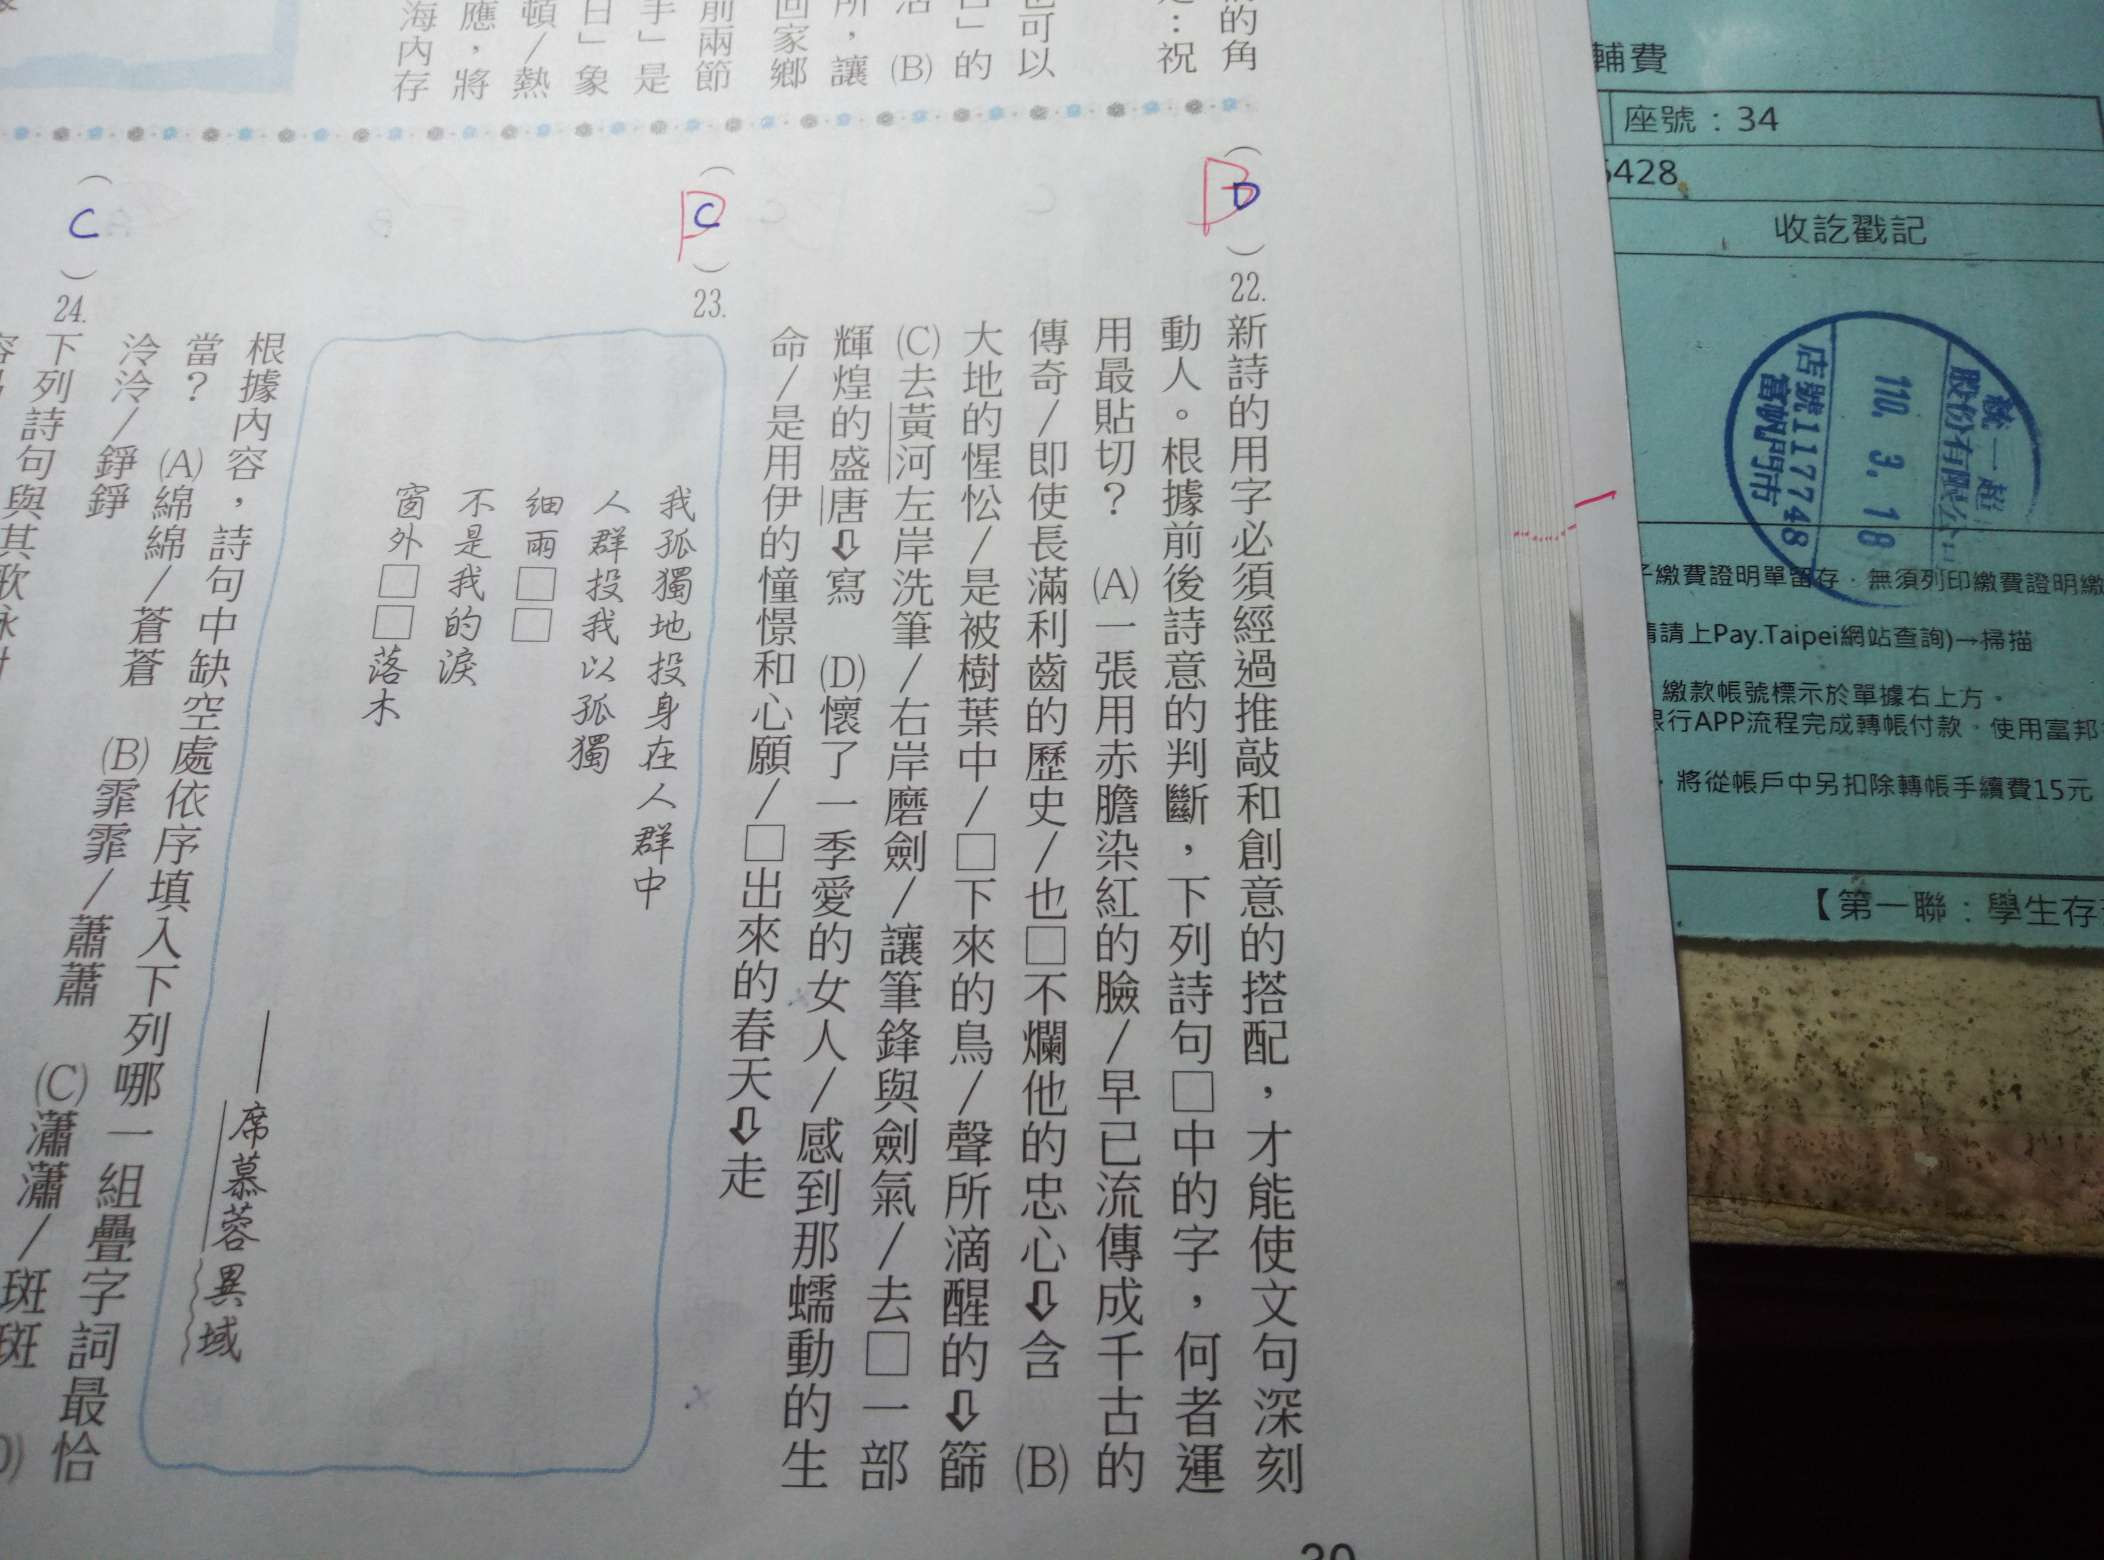 的角
：祝
可以
」的
(B)
，讓
回家鄉
前兩節
手」是
日」象
頓／熱
應，將
海內存
（D B）22.新詩的用字必須經過推敲和創意的搭配，才能使文句深刻
動人。根據前後詩意的判斷，下列詩句□中的字，何者運
用最貼切？ (A)一張用赤膽染紅的臉／早已流傳成千古的
傳奇／即使長滿利齒的歷史／也□不爛他的忠心⇩含 (B)
大地的惺忪／是被樹葉中／□下來的鳥／聲所滴醒的⇩篩
(C)去黃河左岸洗筆／右岸磨劍／讓筆鋒與劍氣／去□一部
輝煌的盛唐⇩寫 (D)懷了一季愛的女人／感到那蠕動的生
命／是用伊的憧憬和心願／□出來的春天⇩走
（C B）23.
我孤獨地投身在人群中
人群投我以孤獨
細雨□□
不是我的淚
窗外□□落木
——席慕蓉異域
根據內容，詩句中缺空處依序填入下列哪一組疊字詞最恰
當？ (A)綿綿／蒼蒼 (B)霏霏／蕭蕭 (C)瀟瀟／斑斑
泠泠／錚錚
（C）24.下列詩句與其歌詠
輔費
座號：34
5428
收訖戳記
統一超
股份有限公
110. 3. 18
店號117748
富帆門市
繳費證明單留存．無須列印繳費證明
請上Pay.Taipei網站查詢)→掃描
繳款帳號標示於單據右上方。
行APP流程完成轉帳付款。使用富邦
，將從帳戶中另扣除轉帳手續費15元
【第一聯：學生存